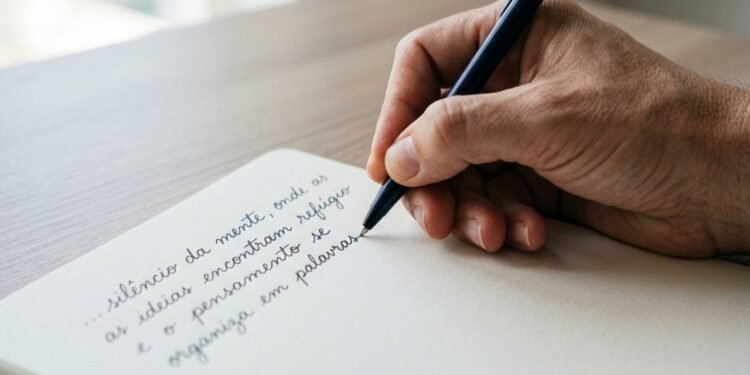 ...silêncio da mente, onde as
as ideias encontram refúgio
e o pensamento se
organiza em palavras